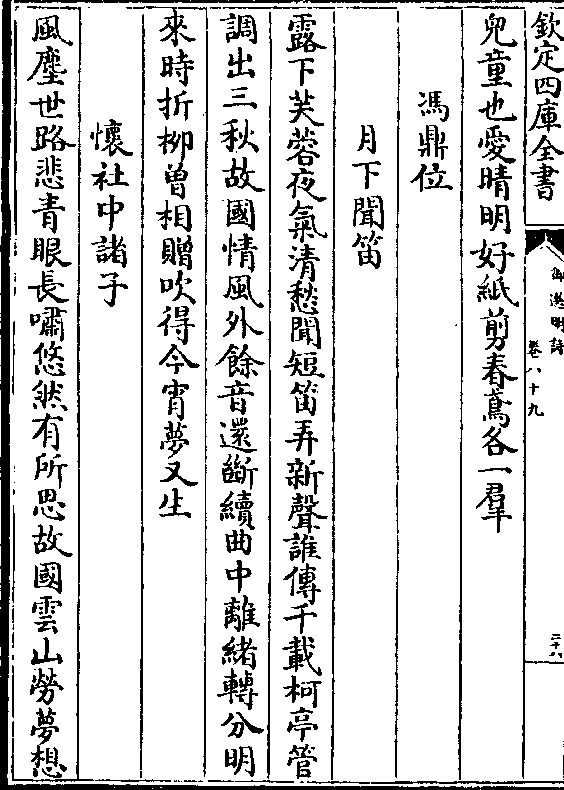 欽定四庫全書
御選明詩
卷八十九
二十六
兒童也愛晴明好紙剪春鳶各一羣
馮鼎位
月下聞笛
露下芙蓉夜氣清愁聞短笛弄新聲誰傳千載柯亭管
調出三秋故國情風外餘音還斷續曲中離緒轉分明
來時折柳曽相贈吹得今宵夢又生
懷社中諸子
風塵世路悲青眼長嘯悠然有所思故國雲山勞夢想